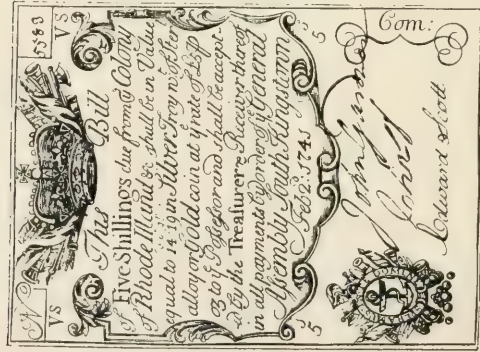 No 5583
VS VS
This Bill
of Five Shillings due from ye Colony
of Rhode Island &c shall be in Value
equal to Silver Troy wt Ster
alloy or Gold Coin at ye rate of
oz to ye Possessor and shall be accept
d by the Treasurer & Receivers thereof
in all payments by order of ye General
Assembly South Kingstown
5 Feb. 2d: 1741 5
5 5
Com:
John
John
Edward Scott